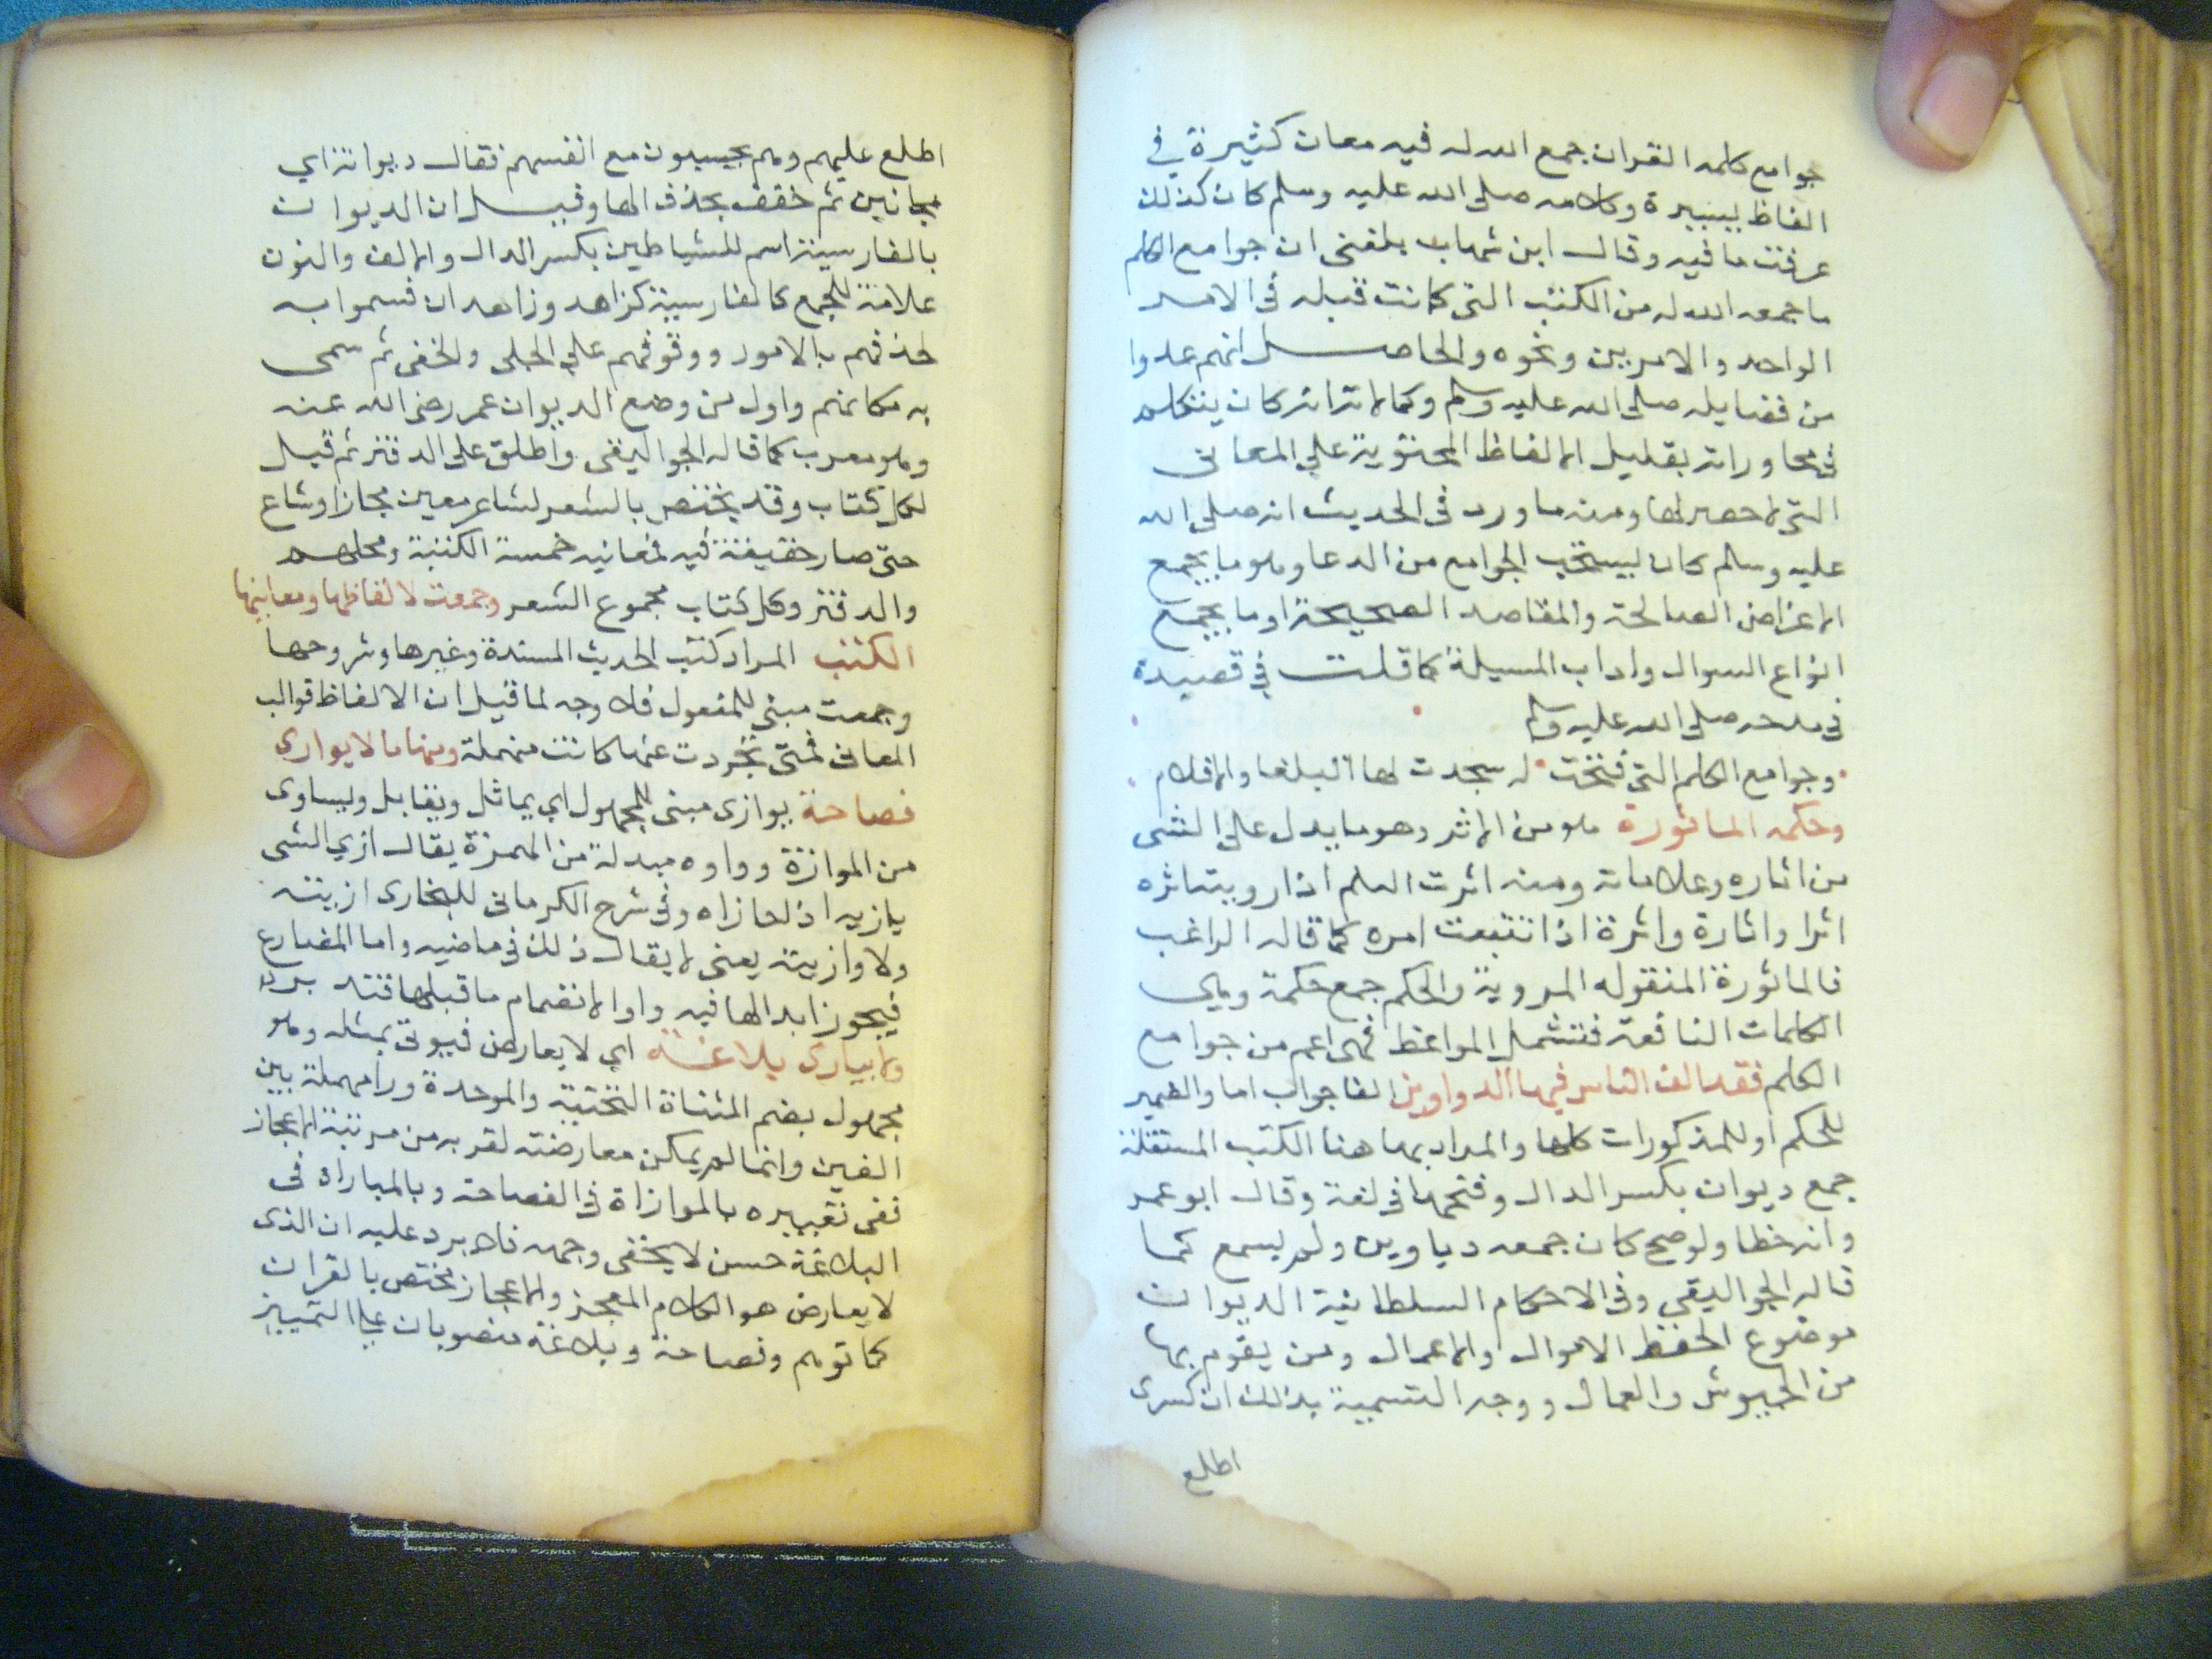 جوامع كلمه القران جمع الله له فيه معان كثيرة في
الفاظ يسيرة وكلامه صلى الله عليه وسلم كان كذلك
عرفت ما فيه وقال ابن شهاب بلغنى ان جوامع الكلم
ما جمعه الله له من الكتب التى كانت قبله فى الامر
الواحد والامرين ونحوه والحاصل انهم عدوا
من فضايله صلى الله عليه وسلم وكمالاته انه كان يتكلم
فى محاوراته بقليل الالفاظ المحتوية علي المعانى
التى لا حصر لها ومنه ما ورد فى الحديث انه صلى الله
عليه وسلم كان يستحب الجوامع من الدعا وهو ما يجمع
الاغراض الصالحة والمقاصد الصحيحة او ما يجمع
انواع السوال واداب المسيلة كما قلت في قصيدة
فى مدحه صلى الله عليه وسلم
وجوامع الكلم التى فتحت له سجدت لها البلغا والاقلام
وحكمه الماثورة هو من الاثر وهو ما يدل علي الشى
من اثاره وعلاماته ومنه اثرت العلم اذا رويته اثره
اثرا واثارة واثرة اذا تتبعت امره كما قاله الراغب
فالماثورة المنقوله المروية والحكم جمع حكمة وهى
الكلمات النافعة فتشمل المواعظ فهى اعم من جوامع
الكلم فقد الف الناس فيها الدواوين الفا جواب اما والضمير
للحكم او للمذكورات كلها والمراد بها هنا الكتب المستقلة
جمع ديوان بكسر الدال وفتحها فى لغة وقال ابو عمر
وانه خطا ولو صح كان جمعه دياوين ولم يسمع كما
قاله الجواليقى وفى الاحكام السلطانية الديوان
موضوع لحفظ الاموال والاعمال ومن يقوم بها
من الجيوش والعمال ووجه التسمية بذلك ان كسرى
اطلع
اطلع عليهم وهم يحسبون مع انفسهم فقال ديوانه اي
مجانين ثم خفف بحذف الها وقيل ان الديوان
بالفارسية اسم للشياطين بكسر الدال والالف والنون
علامة للجمع كالفارسية كزاهد وزاهدان فسموا به
لحذقهم بالامور ووقوفهم علي الجلى والخفى ثم سمى
به مكانهم واول من وضع الديوان عمر رضى الله عنه
وهو معرب كما قاله الجواليقى واطلق على الدفتر ثم قيل
لكل كتاب وقد يختص بالشعر لشاعر معين مجازا وشاع
حتى صار حقيقة فيه فمعانيه خمسة الكتبة ومحلهم
والدفتر وكل كتاب مجموع الشعر وجمعت لالفاظها ومعانيها
الكتب المراد كتب الحديث المسندة وغيرها وشروحها
وجمعت مبنى للمفعول فلا وجه لما قيل ان الالفاظ قوالب
المعانى فمتى تجردت عنها كانت مهملة ومنها ما لا يوازى
فصاحة يوازى مبنى للمجهول اي يماثل ويقابل ويساوى
من الموازة وواوه مبدلة من الهمزة يقال ازي الشى
يازيه اذا حازاه وفى شرح الكرمانى للبخارى ازيته
ولا وازيته يعنى لا يقال ذلك فى ماضيه واما المضارع
فيجوز ابدالها فيه واوا لانضمام ما قبلها فتدبره
ولا يبارى بلاغة اي لا يعارض فيوتى بمثله وهو
مجهول بضم المثناة التحتية والموحدة ورا مهملة بين
الفين وانما لم يمكن معارضته لقربه من مرتبة الاعجاز
ففى تعبيره بالموازاة فى الفصاحة وبالمباراة فى
البلاغة حسن لا يخفى وجهه فلا يرد عليه ان الذى
لا يعارض هو الكلام المعجز والاعجاز مختص بالقران
كما توهم وفصاحة وبلاغة منصوبان على التمييز